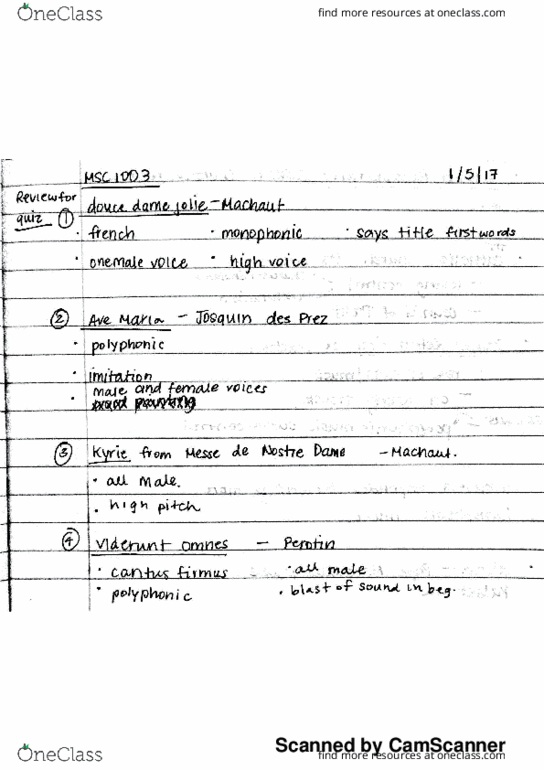 OneClass find more resources at oneclass.com
MSC 1003 1/5/17
Review for
quiz ① douce dame jolie - Machaut
· french · monophonic · says title first words
· one male voice · high voice
② Ave Maria - Josquin des Prez
· polyphonic
· imitation
· male and female voices
③ Kyrie from Messe de Nostre Dame - Machaut.
· all male.
· high pitch
④ Viderunt omnes - Perotin
· cantus firmus · all male
· polyphonic · blast of sound in beg.
Scanned by CamScanner
OneClass find more resources at oneclass.com